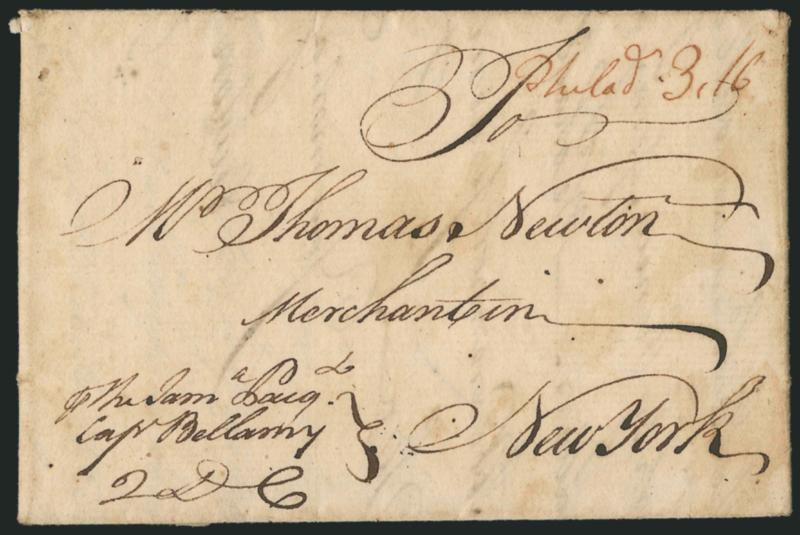 To
Philad 3,16
Mr Thomas Newton
Merchant in
New York
⅌ the Jama Pacqt
Capt Bellamy
2 D C